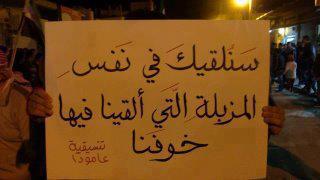 سَنُلقيكَ في نَفسِ
المزبلةِ الَّتي ألقينا فيها
خوفَنا
تنسيقية
عامودا